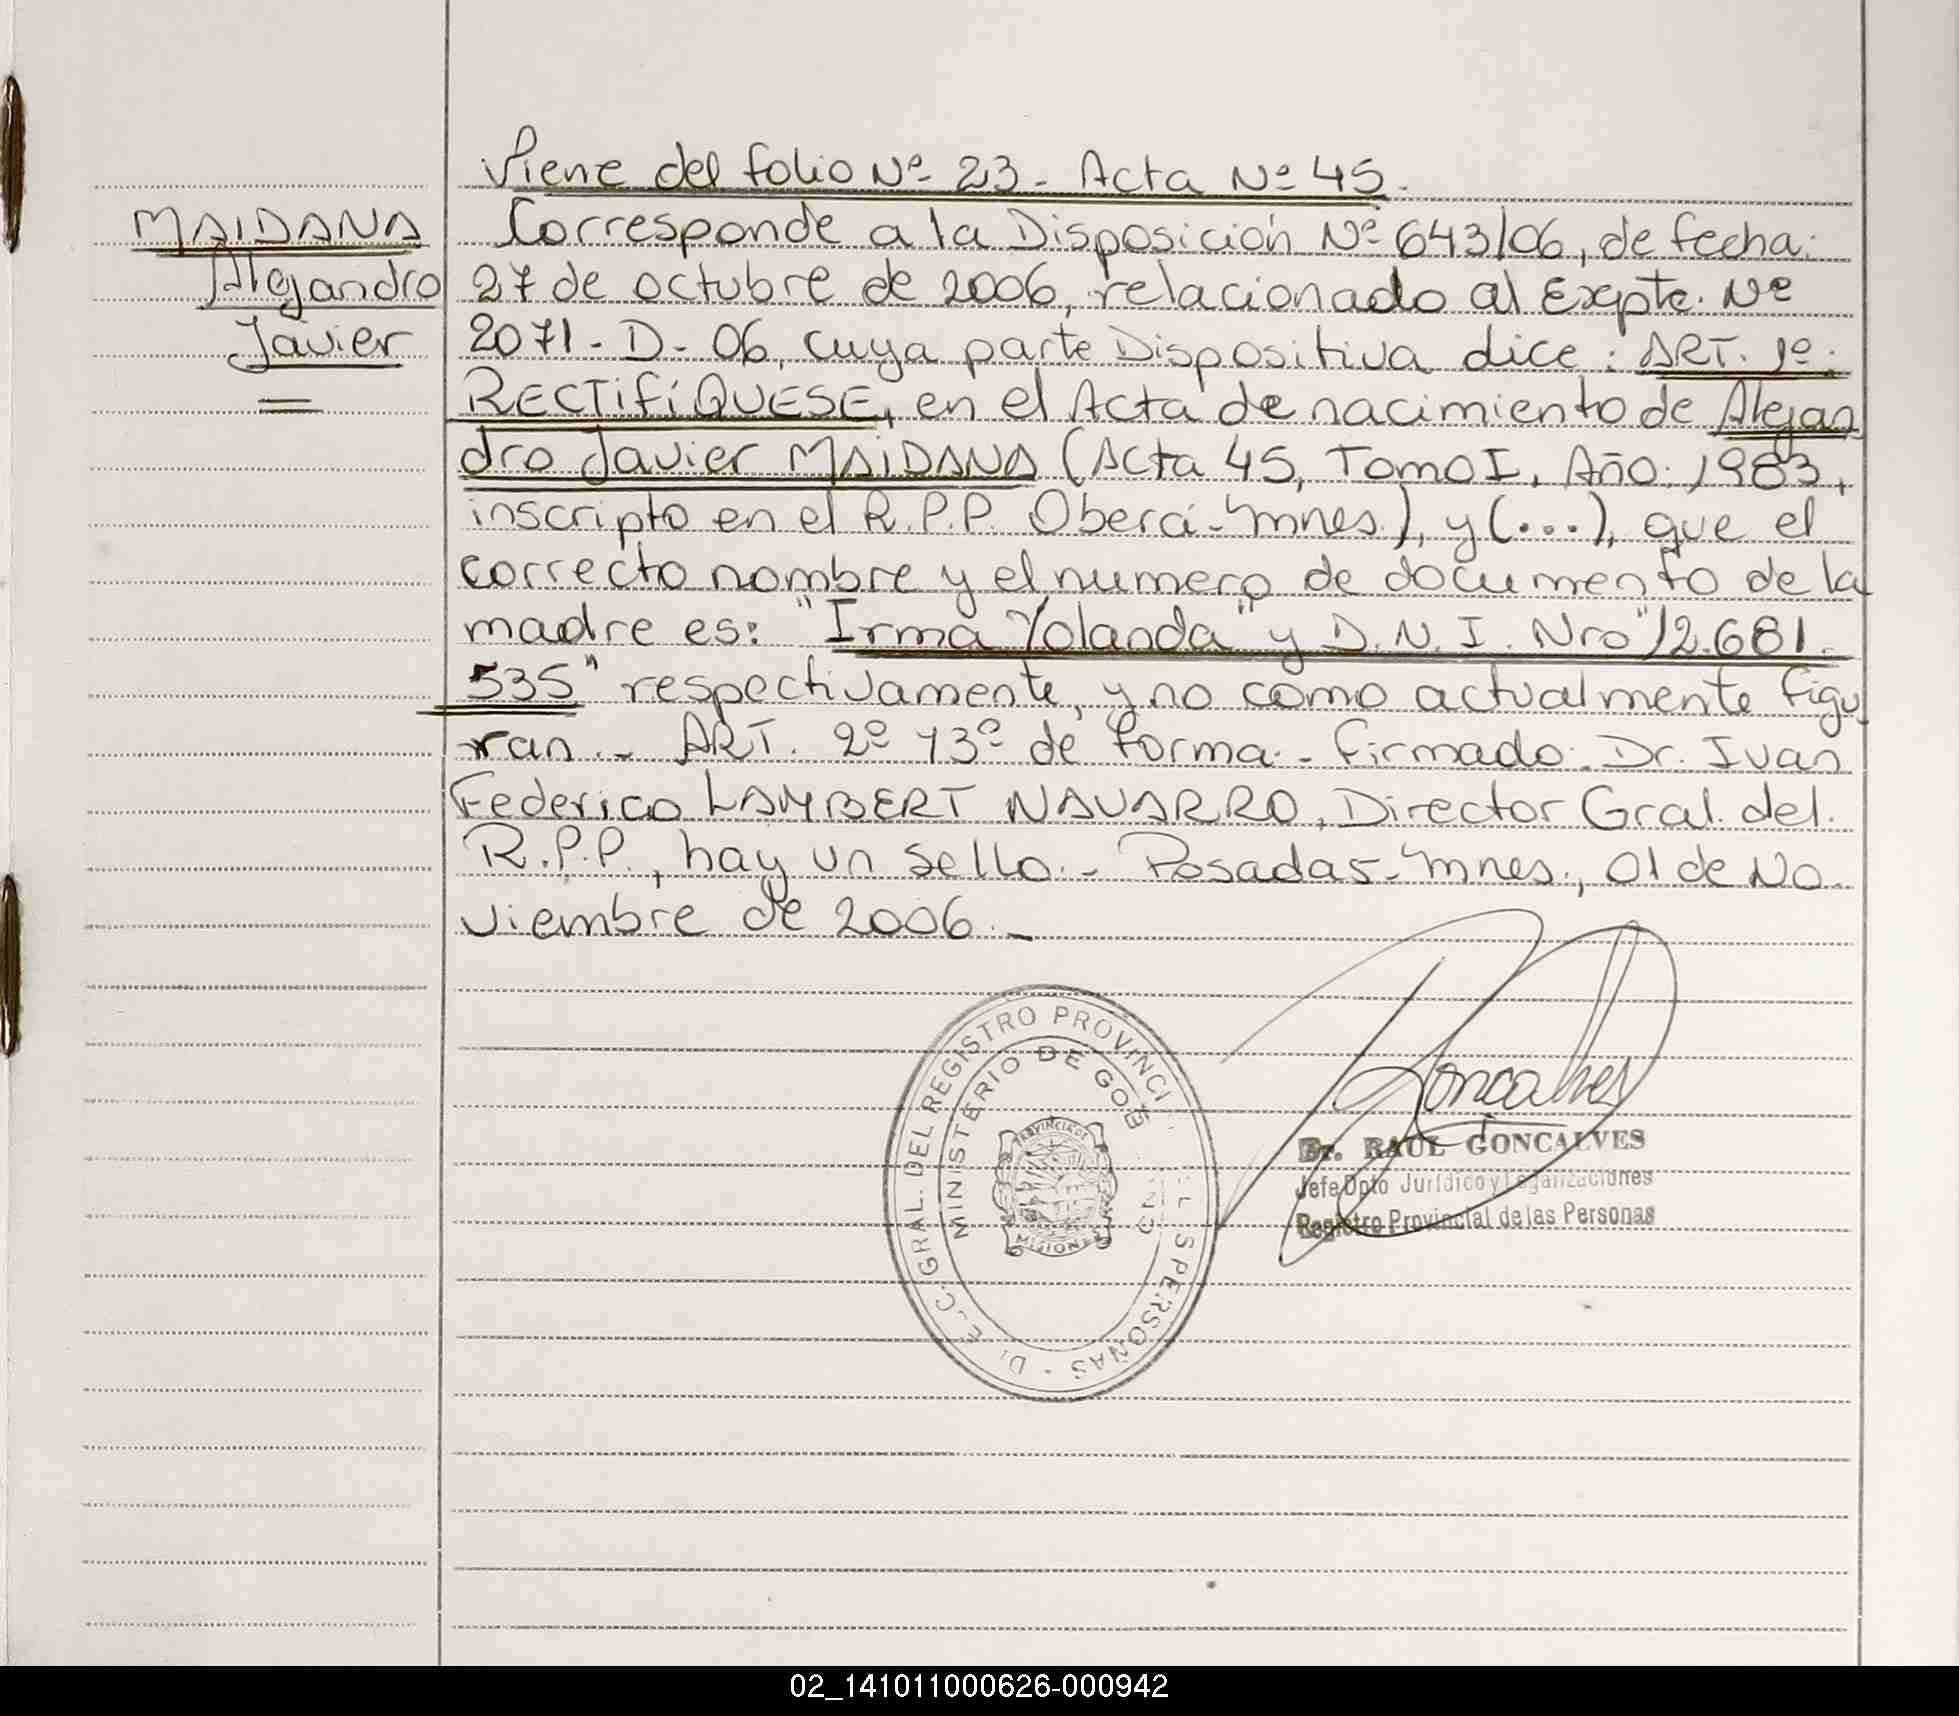 Viene del folio Nº 23 - Acta Nº 45.
MAIDANA
Alejandro
Javier
Corresponde a la Disposición Nº 643/06, de fecha:
27 de octubre de 2006, relacionado al Expte. Nº
2071 - D - 06, cuya parte Dispositiva dice: ART. 1º:
RECTIFÍQUESE, en el Acta de nacimiento de Alejan
dro Javier MAIDANA (Acta 45, Tomo I, Año: 1983,
inscripto en el R.P.P. Oberá - Mnes.), y (...), que el
correcto nombre y el numero de documento de la
madre es: "Irma Yolanda" y D.N.I. Nro "12.681.
535" respectivamente, y no como actualmente figu
ran.- ART. 2º y 3º de forma.- Firmado: Dr. Ivan
Federico LAMBERT NAVARRO, Director Gral. del
R.P.P., hay un sello.- Posadas - Mnes., 01 de No
viembre de 2006.-
GRAL. DEL REGISTRO PROVINCI
PERSONAS
MINISTERIO DE GOB
PROVINCIA DE
MISIONES
Gonçalves
Dr. RAUL GONCALVES
Jefe Dpto Jurídico y Legalizaciones
Registro Provincial de las Personas
02_141011000626-000942